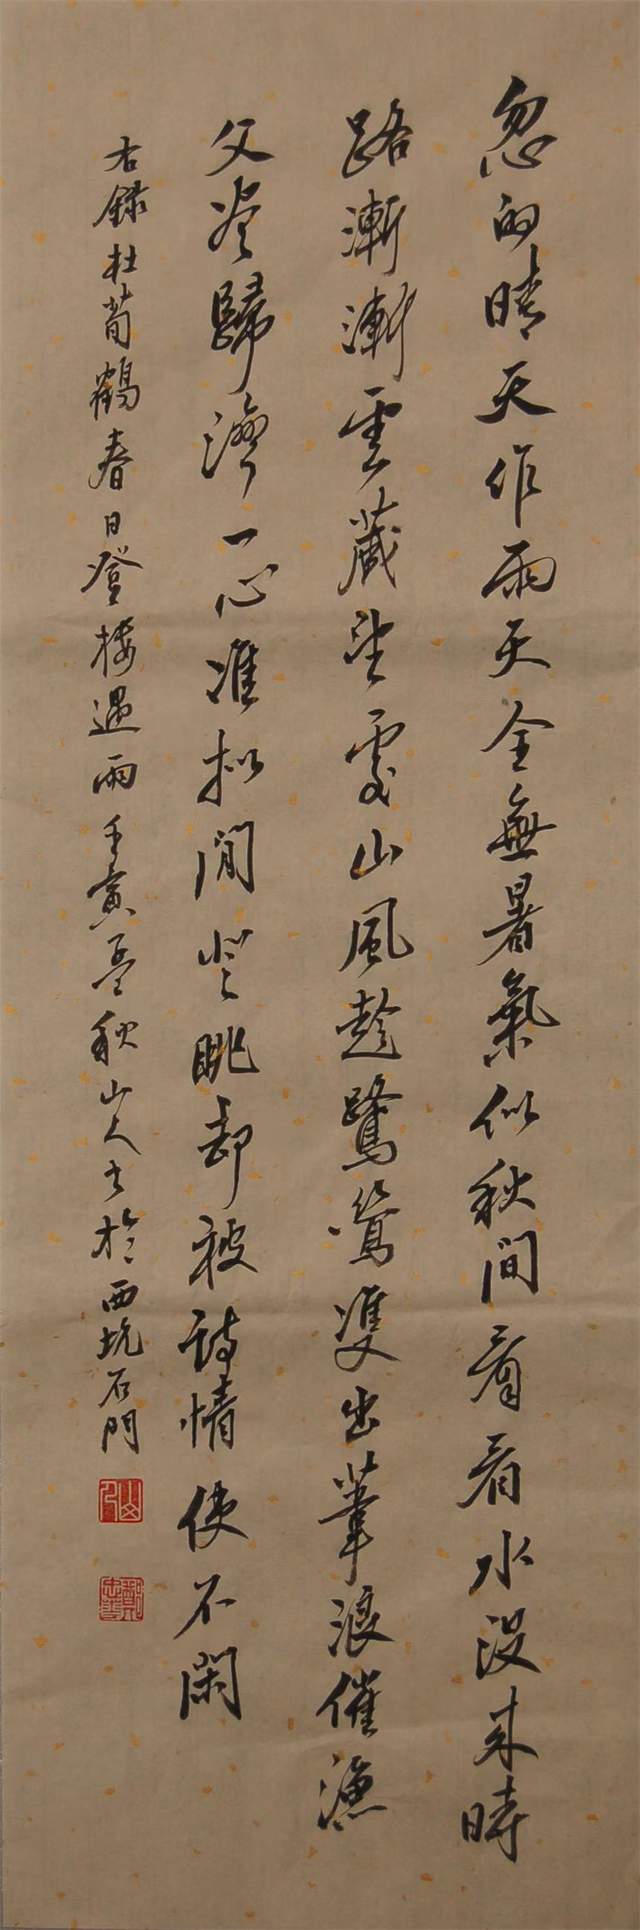 忽的晴天作雨天全無暑氣似秋間看看水没来時
路漸漸雲藏望處山風趁鷺鷥雙出葦浪催漁
父尽歸灣一心准拟閒登眺却被詩情使不閑
右錄杜荀鶴春日登楼遇雨壬寅孟秋山人书於西坑石門